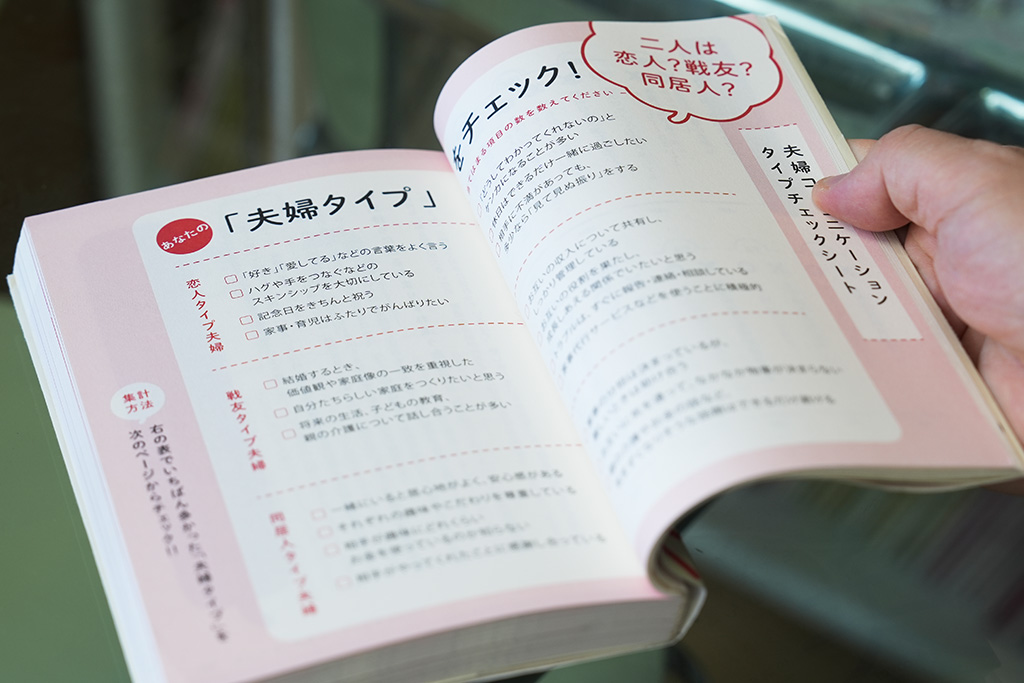 二人は
恋人?戦友?
同居人?
夫婦コ ニケーション
タイプチェックシート
あなたの
「夫婦タイプ」
をチェック!
はまる項目の数を数えてください
恋人タイプ夫婦
□「好き」「愛してる」などの言葉をよく言う
□ハグや手をつなぐなどの
スキンシップを大切にしている
□記念日をきちんと祝う
□家事・育児はふたりでがんばりたい
どうしてわかってくれないの」と
ケンカになることが多い
休日はできるだけ一緒に過ごしたい
相手に不満があっても、
なら「見て見ぬ振り」をする
戦友タイプ夫婦
□結婚するとき、
価値観や家庭像の一致を重視した
□自分たちらしい家庭をつくりたいと思う
□将来の生活、子どもの教育、
親の介護について話し合うことが多い
お互いの収入について共有し、
しっかり管理している
お互いの役割を果たし、
成長しあえる関係でいたいと思う
ルは、すぐに報告・連絡・相談している
サービスなどを使うことに積極的
同居人タイプ夫婦
□一緒にいると居心地がよく、安心感がある
□それぞれの趣味やこだわりを尊重している
□相手が趣味にどれくらい
お金を使っているのか知らない
□相手がやってくれたことに感謝し合っている
は決まっているが、
なかなか物事が決まらない
集計
方法
右の表でいちばん多かった「夫婦タイプ」を
次のページからチェック!!